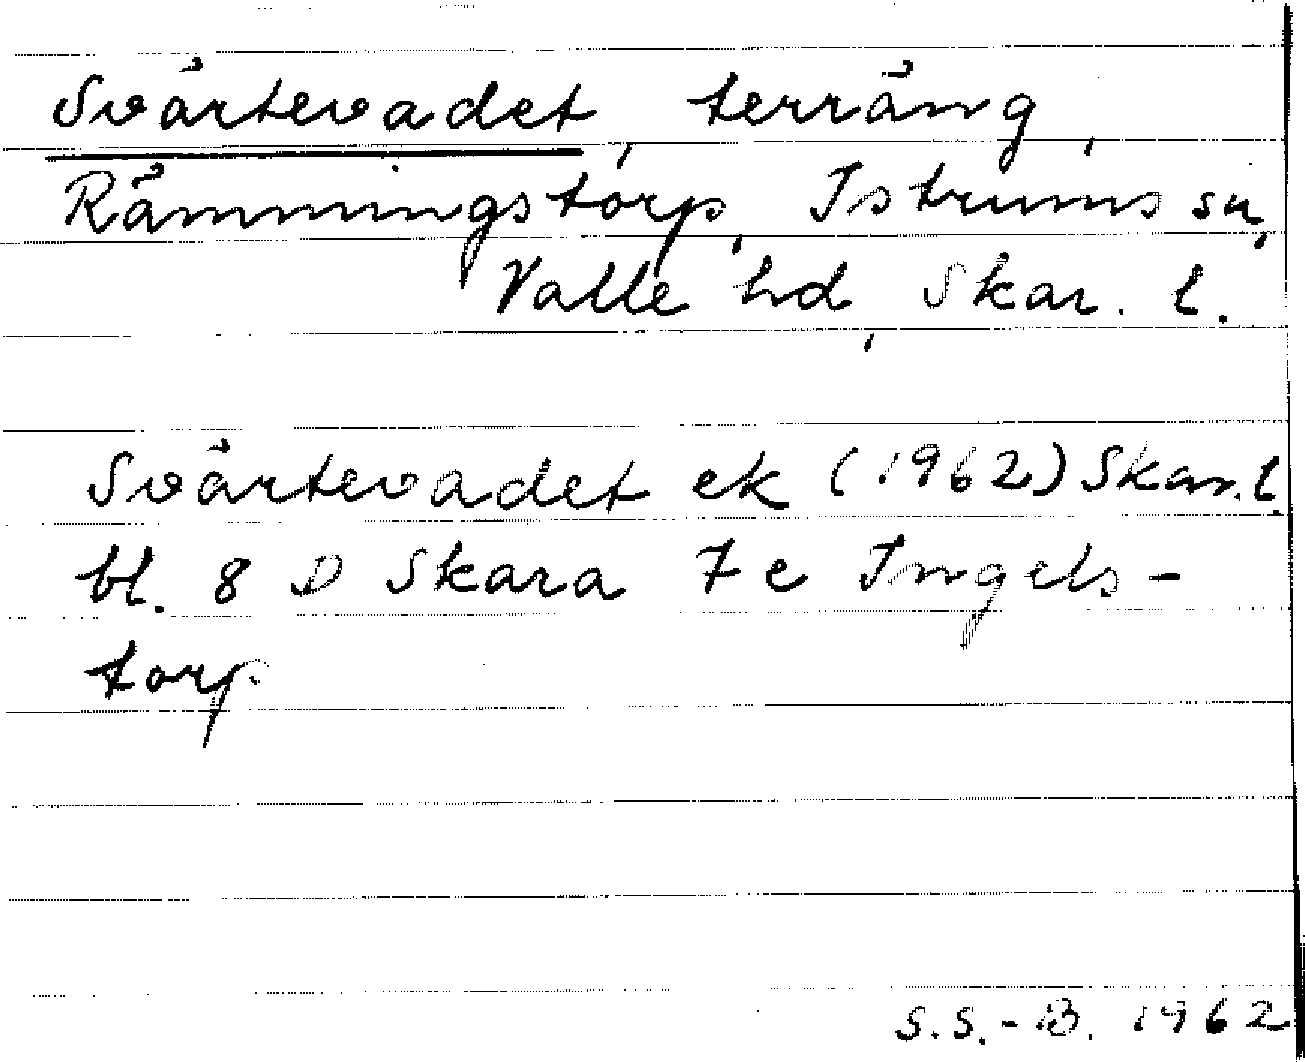 Svärtevadet, terräng,
Rämningstorp, Istrums sn,
Valle hd, Skar. l.
Svärtevadet ek (1962) Skar. l.
bl. 8 D Skara 7e Ingels-
torp.
S.S.-B. 1962